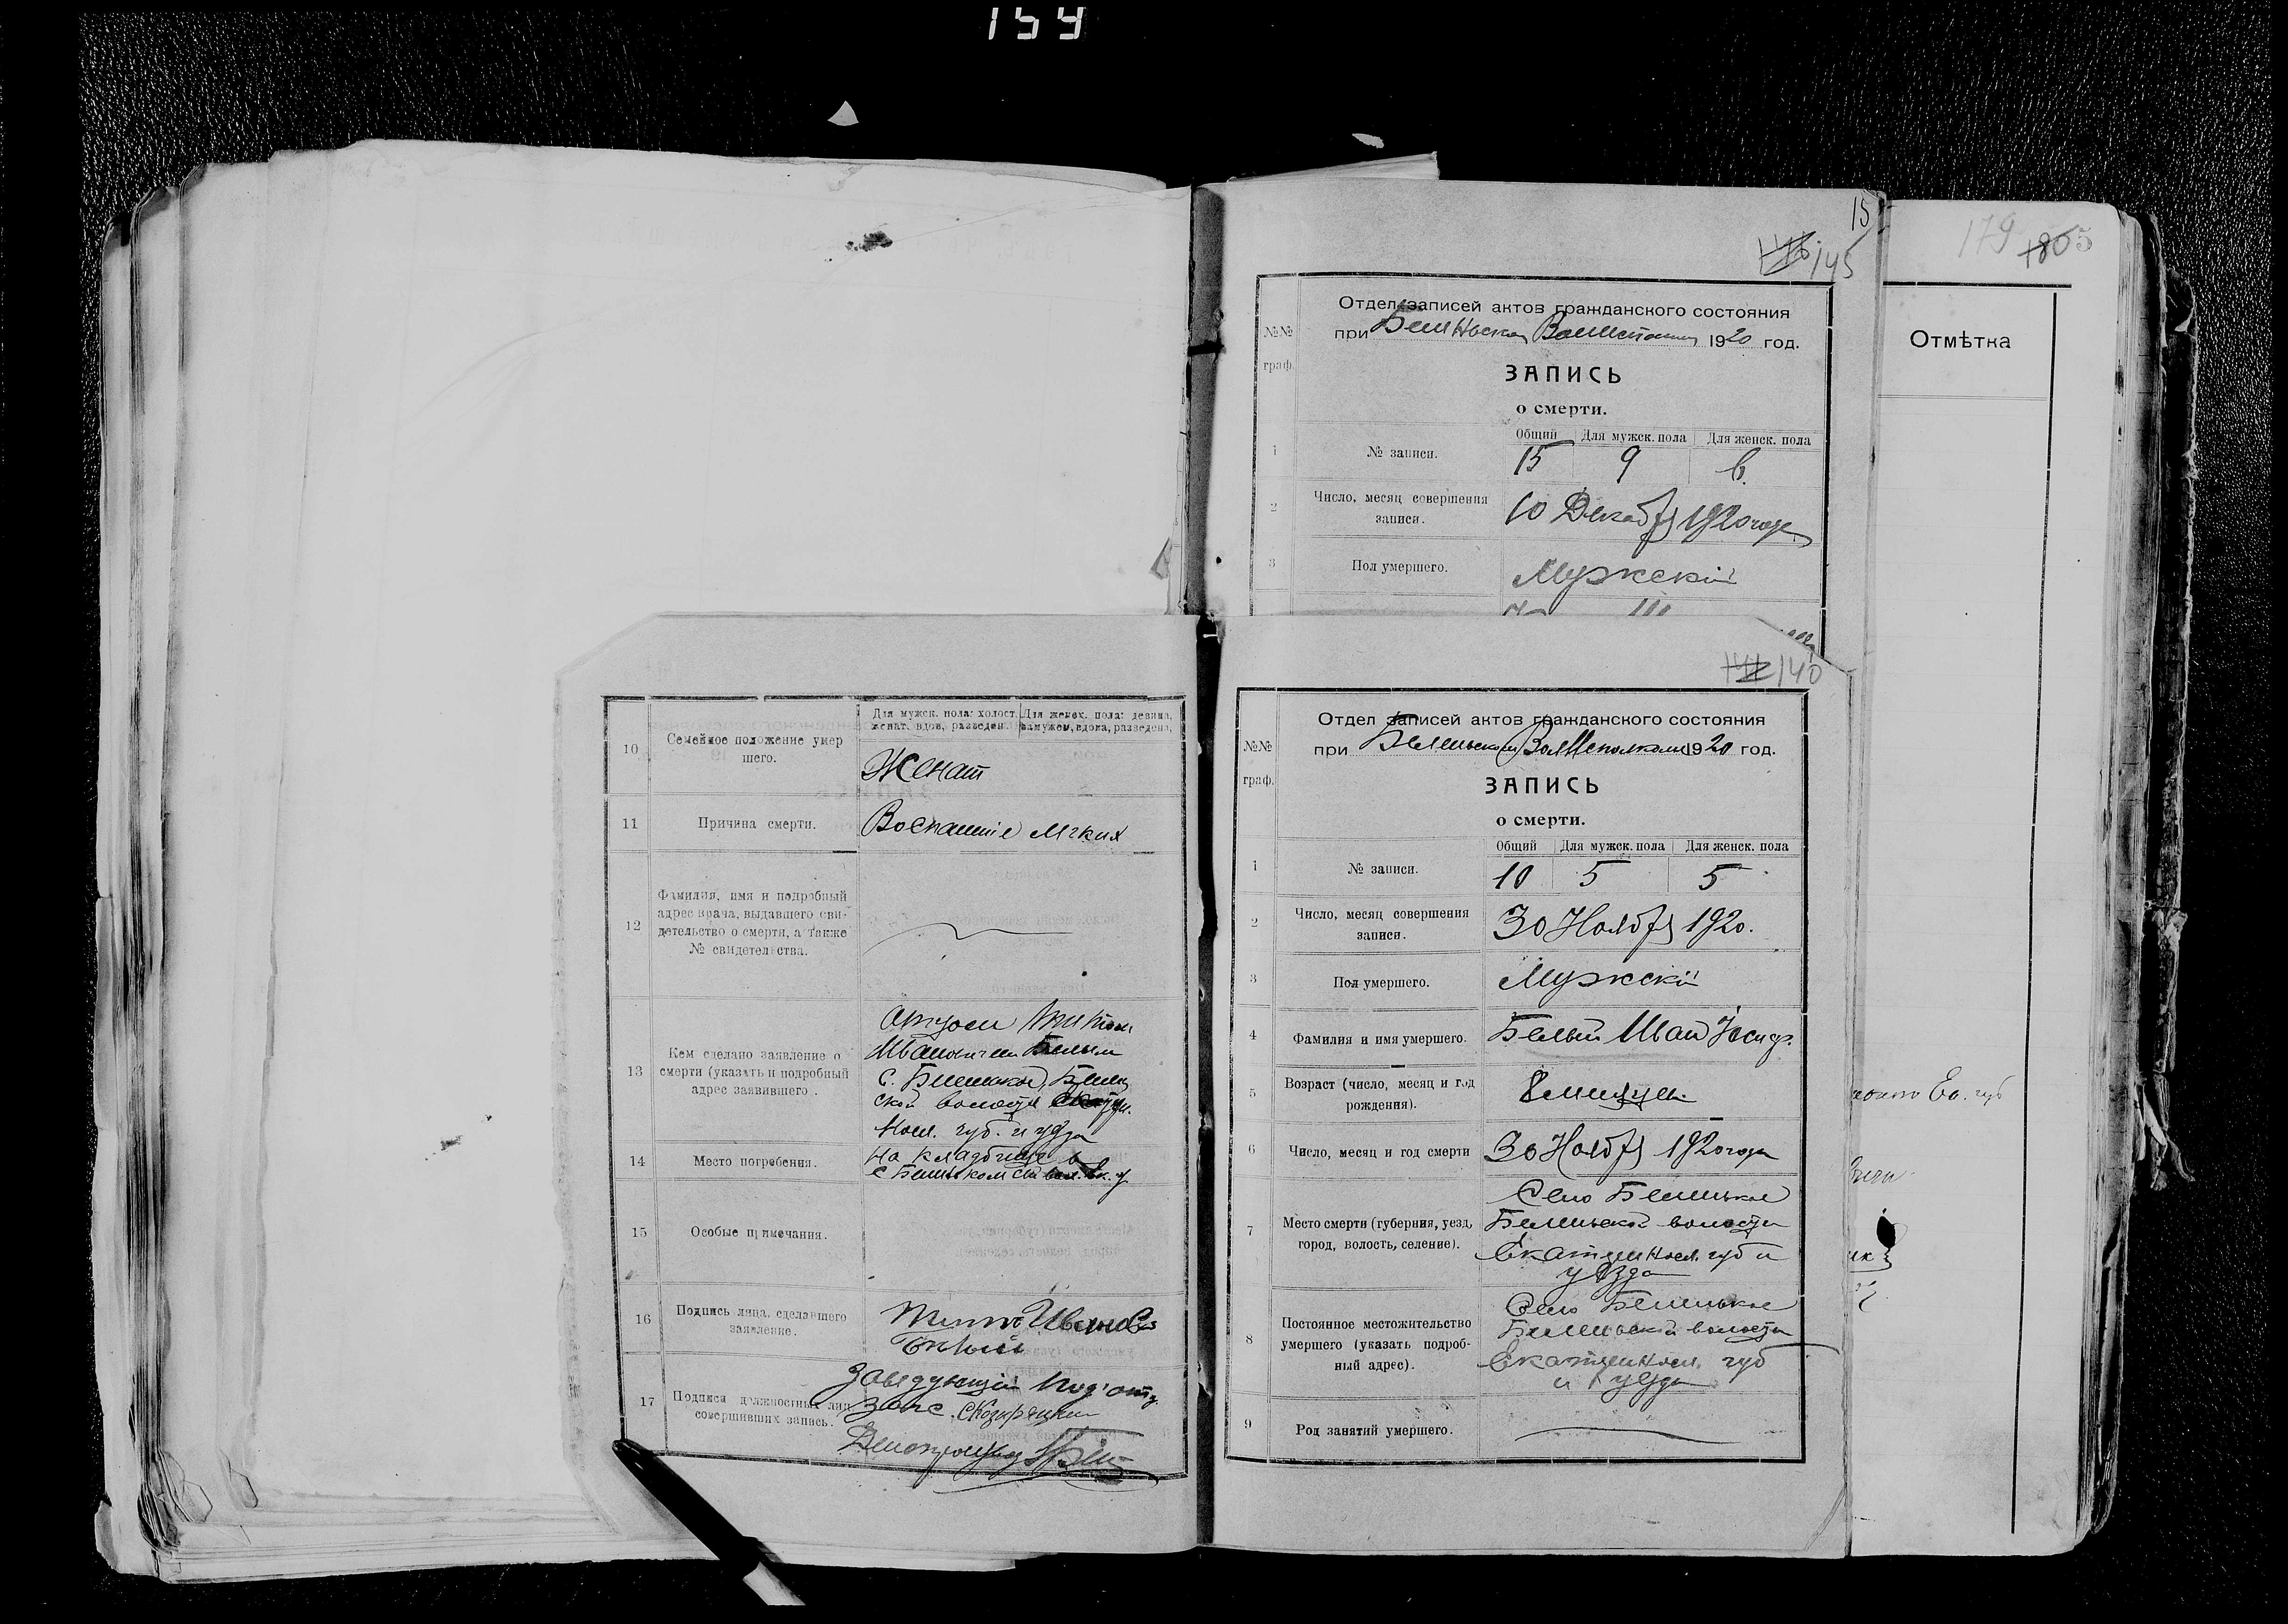 154
15
145
Отдел записей актов гражданского состояния
при 1920 год.
№№
граф.
ЗАПИСЬ
о смерти.
Общий Для мужск. пола Для женск. пола
1 № записи. 15 9 6
2 Число, месяц совершения
записи.
10 Декабря 1920 года
3 Пол умершего. Мужскій
179 180 5
Отмѣтка
Ек. губ
10 Семейное положение умер
шего.
Для мужск. пола: холост. женат. вдов, разведен.
Для женск. пола: девица, замужем, вдова, разведена,
Женат
11 Причина смерти. Воспаленіе
12 Фамилия, имя и подробный
адрес врача, выдавшего сви-
детельство о смерти, а также
№ свидетельства.
13 Кем сделано заявление о
смерти (указать и подробный
адрес заявившего.
Ивановичем Белым
с.
ской волости
губ. и уезда
14 Место погребения. На кладбище в
с
15 Особые примечания.
16 Подпись лица, сделавшего
заявление.
Иванов
Белый
17 Подписи должностных лиц,
совершивших запись.
Заведующій Под'отд.
загс
Делопроизвод
140
Отдел записей актов гражданского состояния
при 1920 год.
№№
граф.
ЗАПИСЬ
о смерти.
Общий Для мужск. пола Для женск. пола
1 № записи. 10 5 5
2 Число, месяц совершения
записи.
30 Ноября 1920.
3 Пол умершего. Мужскій
4 Фамилия и имя умершего. Белый Иван Иосиф.
5 Возраст (число, месяц и год
рождения).
6 Число, месяц и год смерти 30 Ноября 1920 года
7 Место смерти (губерния, уезд,
город, волость, селение).
Село
волости
Екатериносл. губ и
уезда
8 Постоянное местожительство
умершего (указать подроб-
ный адрес).
Село
волости
Екатериносл. губ
и уезда
9 Род занятий умершего.